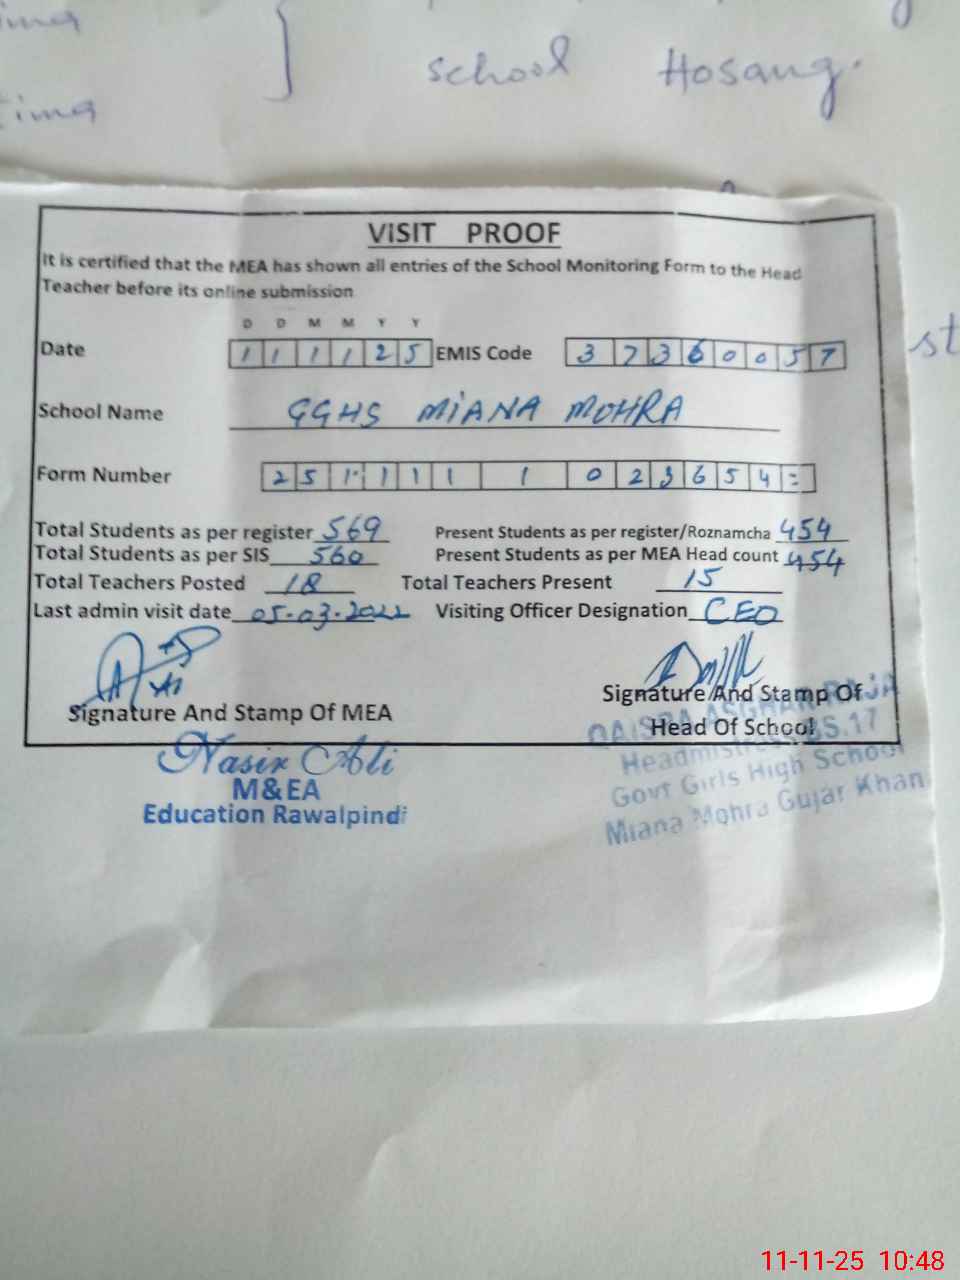 school Hosang.
VISIT PROOF
It is certified that the MEA has shown all entries of the School Monitoring Form to the Head
Teacher before its online submission
D D M M Y Y
Date 1 1 1 1 2 5 EMIS Code 3 7 3 6 0 0 5 7
School Name GGHS MIANA MOHRA
Form Number 2 5 1 1 1 1 1 0 2 3 6 5 4
Total Students as per register 569 Present Students as per register/Roznamcha 454
Total Students as per SIS 560 Present Students as per MEA Head count 454
Total Teachers Posted 18 Total Teachers Present 15
Last admin visit date 05-03-2022 Visiting Officer Designation CEO
Signature And Stamp Of MEA
Signature And Stamp Of
Head Of School
Nasir Ali
M&EA
Education Rawalpindi
QAISRA ASGHAR RAJA
Headmistress BS.17
Govt Girls High School
Miana Mohra Gujar Khan
st
11-11-25 10:48